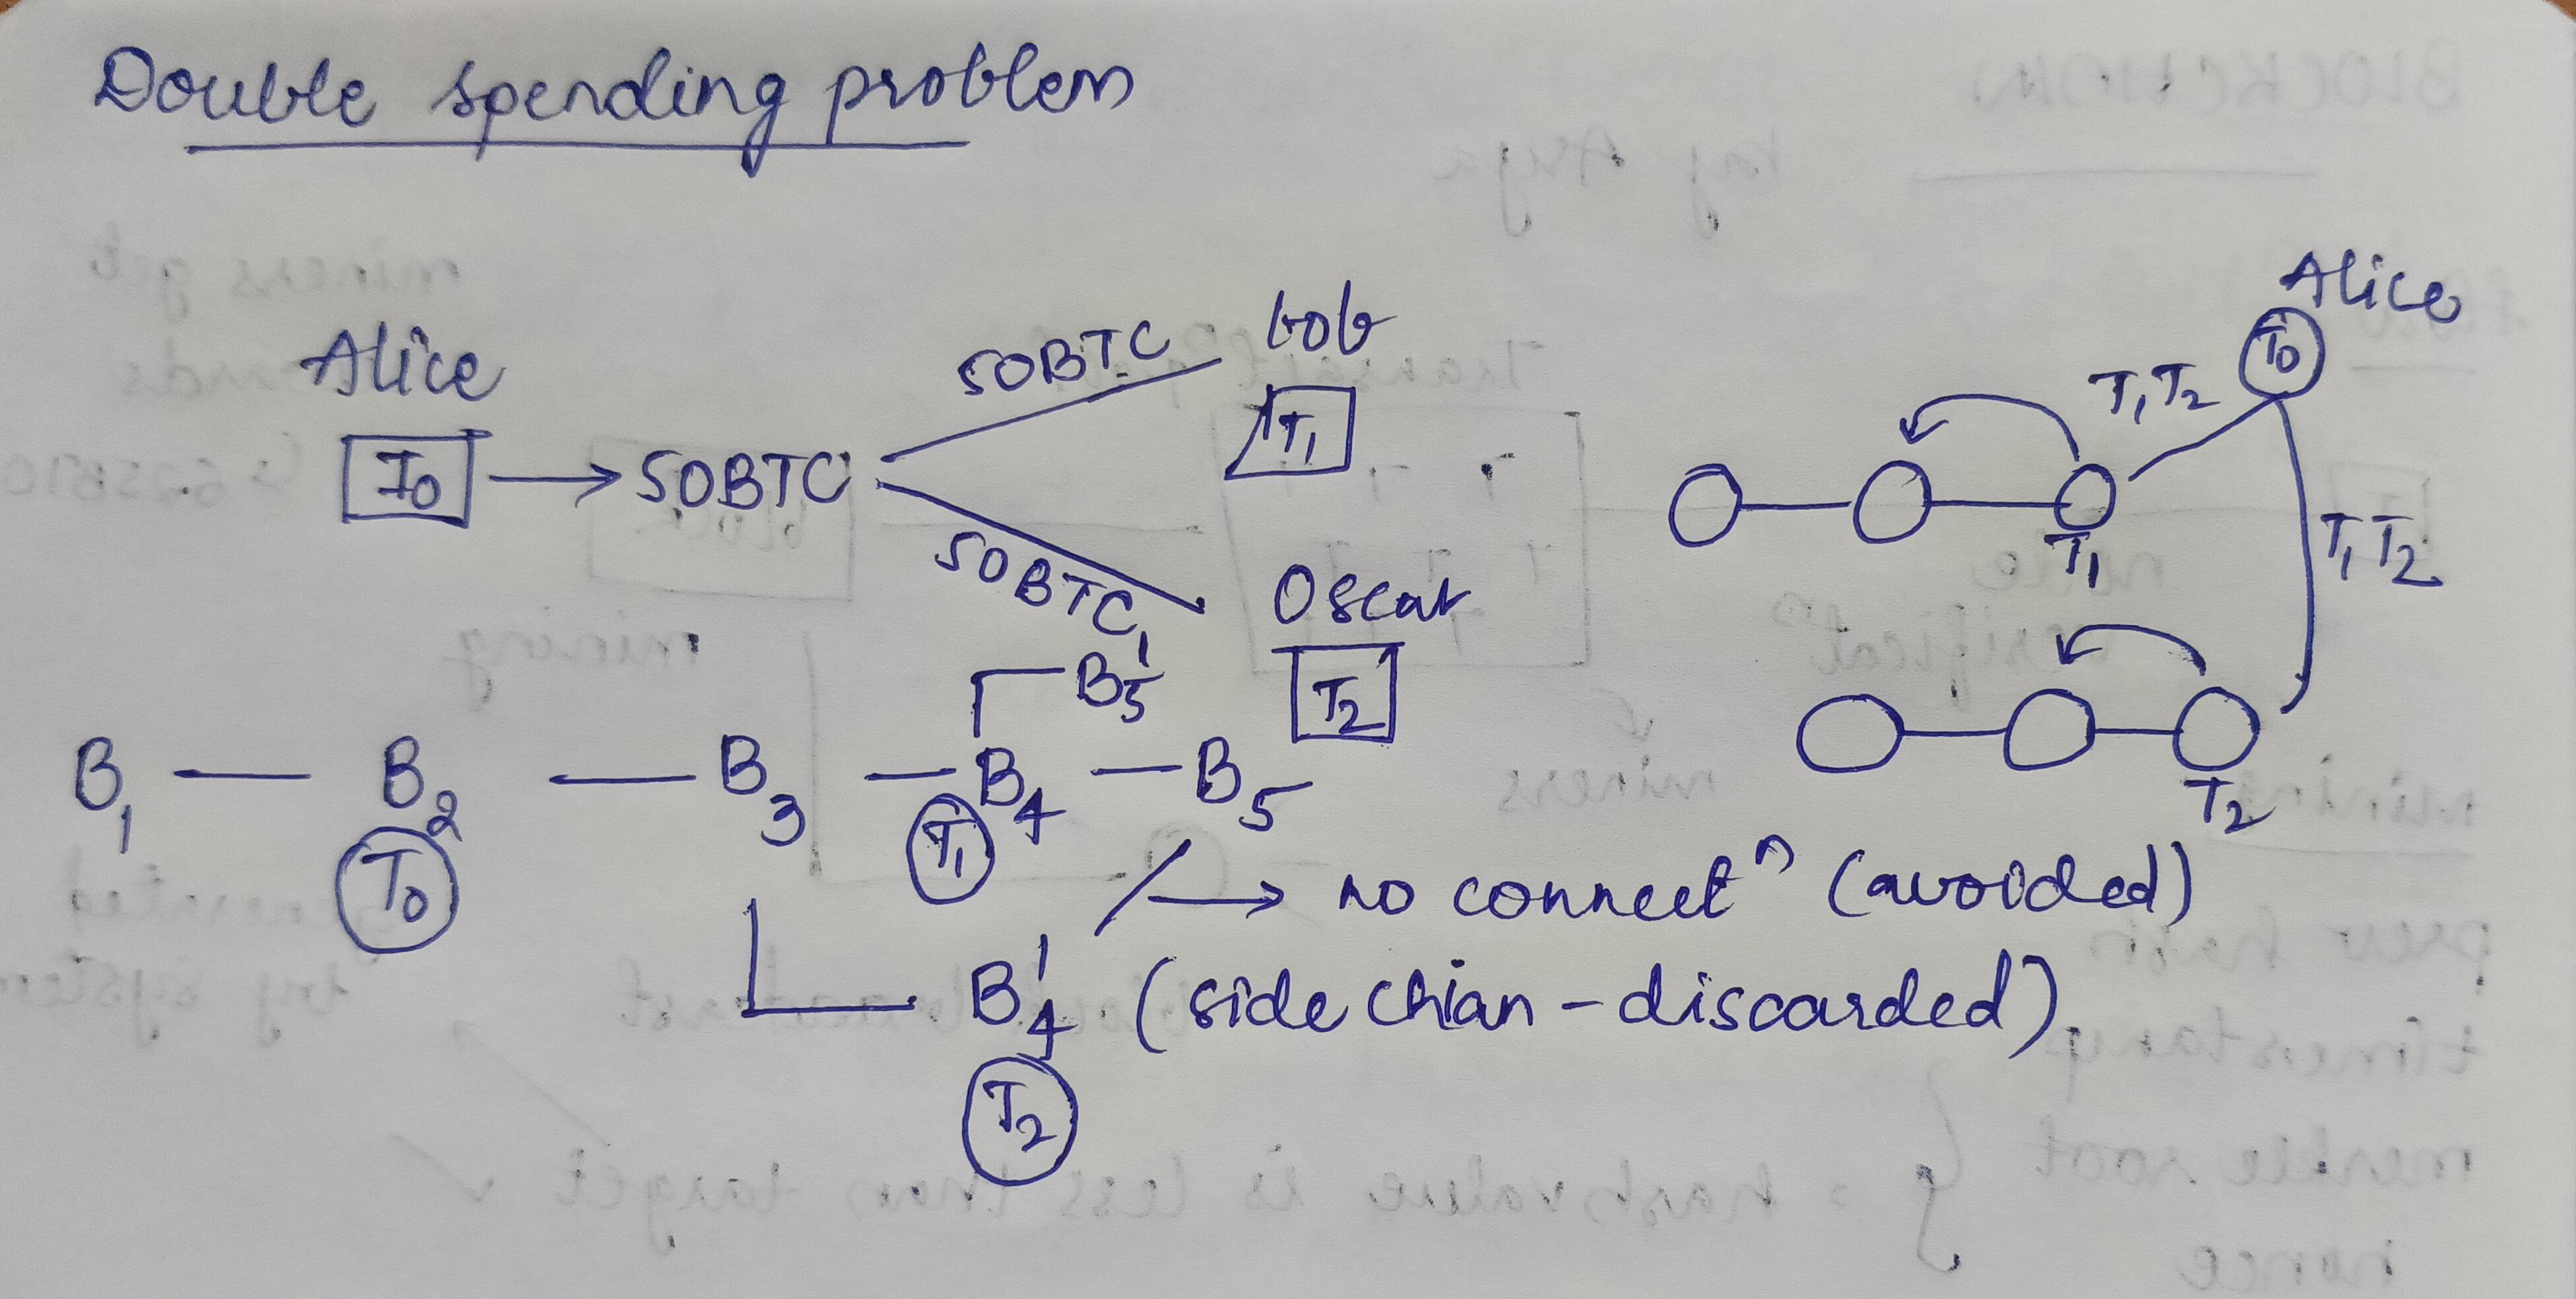 Double spending problem
Alice
T0
50BTC
50BTC
bob
T1
50BTC
Oscar
T2
Alice
T0
T1 T2
T1
T1 T2
T2
B5'
B1 — B2 — B3 — B4 — B5
T0
T1
→ no connectⁿ (avoided)
B4' (side chian - discarded)
T2